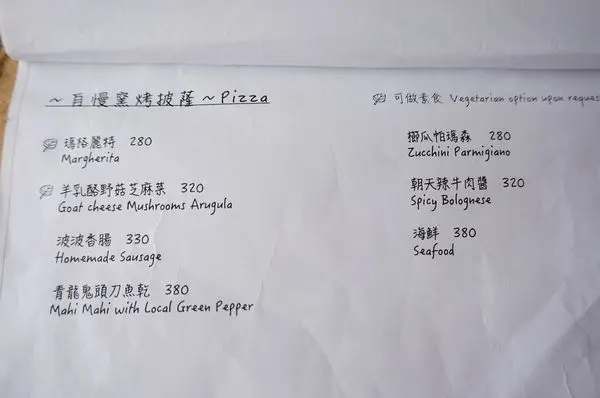 ~自慢窯烤披薩~Pizza
可做素食 Vegetarian option upon reques
瑪格麗特 280
Margherita
羊乳酪野菇芝麻菜 320
Goat cheese Mushrooms Arugula
波波香腸 330
Homemade Sausage
青龍鬼頭刀魚乾 380
Mahi Mahi with Local Green Pepper
櫛瓜帕瑪森 280
Zucchini Parmigiano
朝天辣牛肉醬 320
Spicy Bolognese
海鮮 380
Seafood